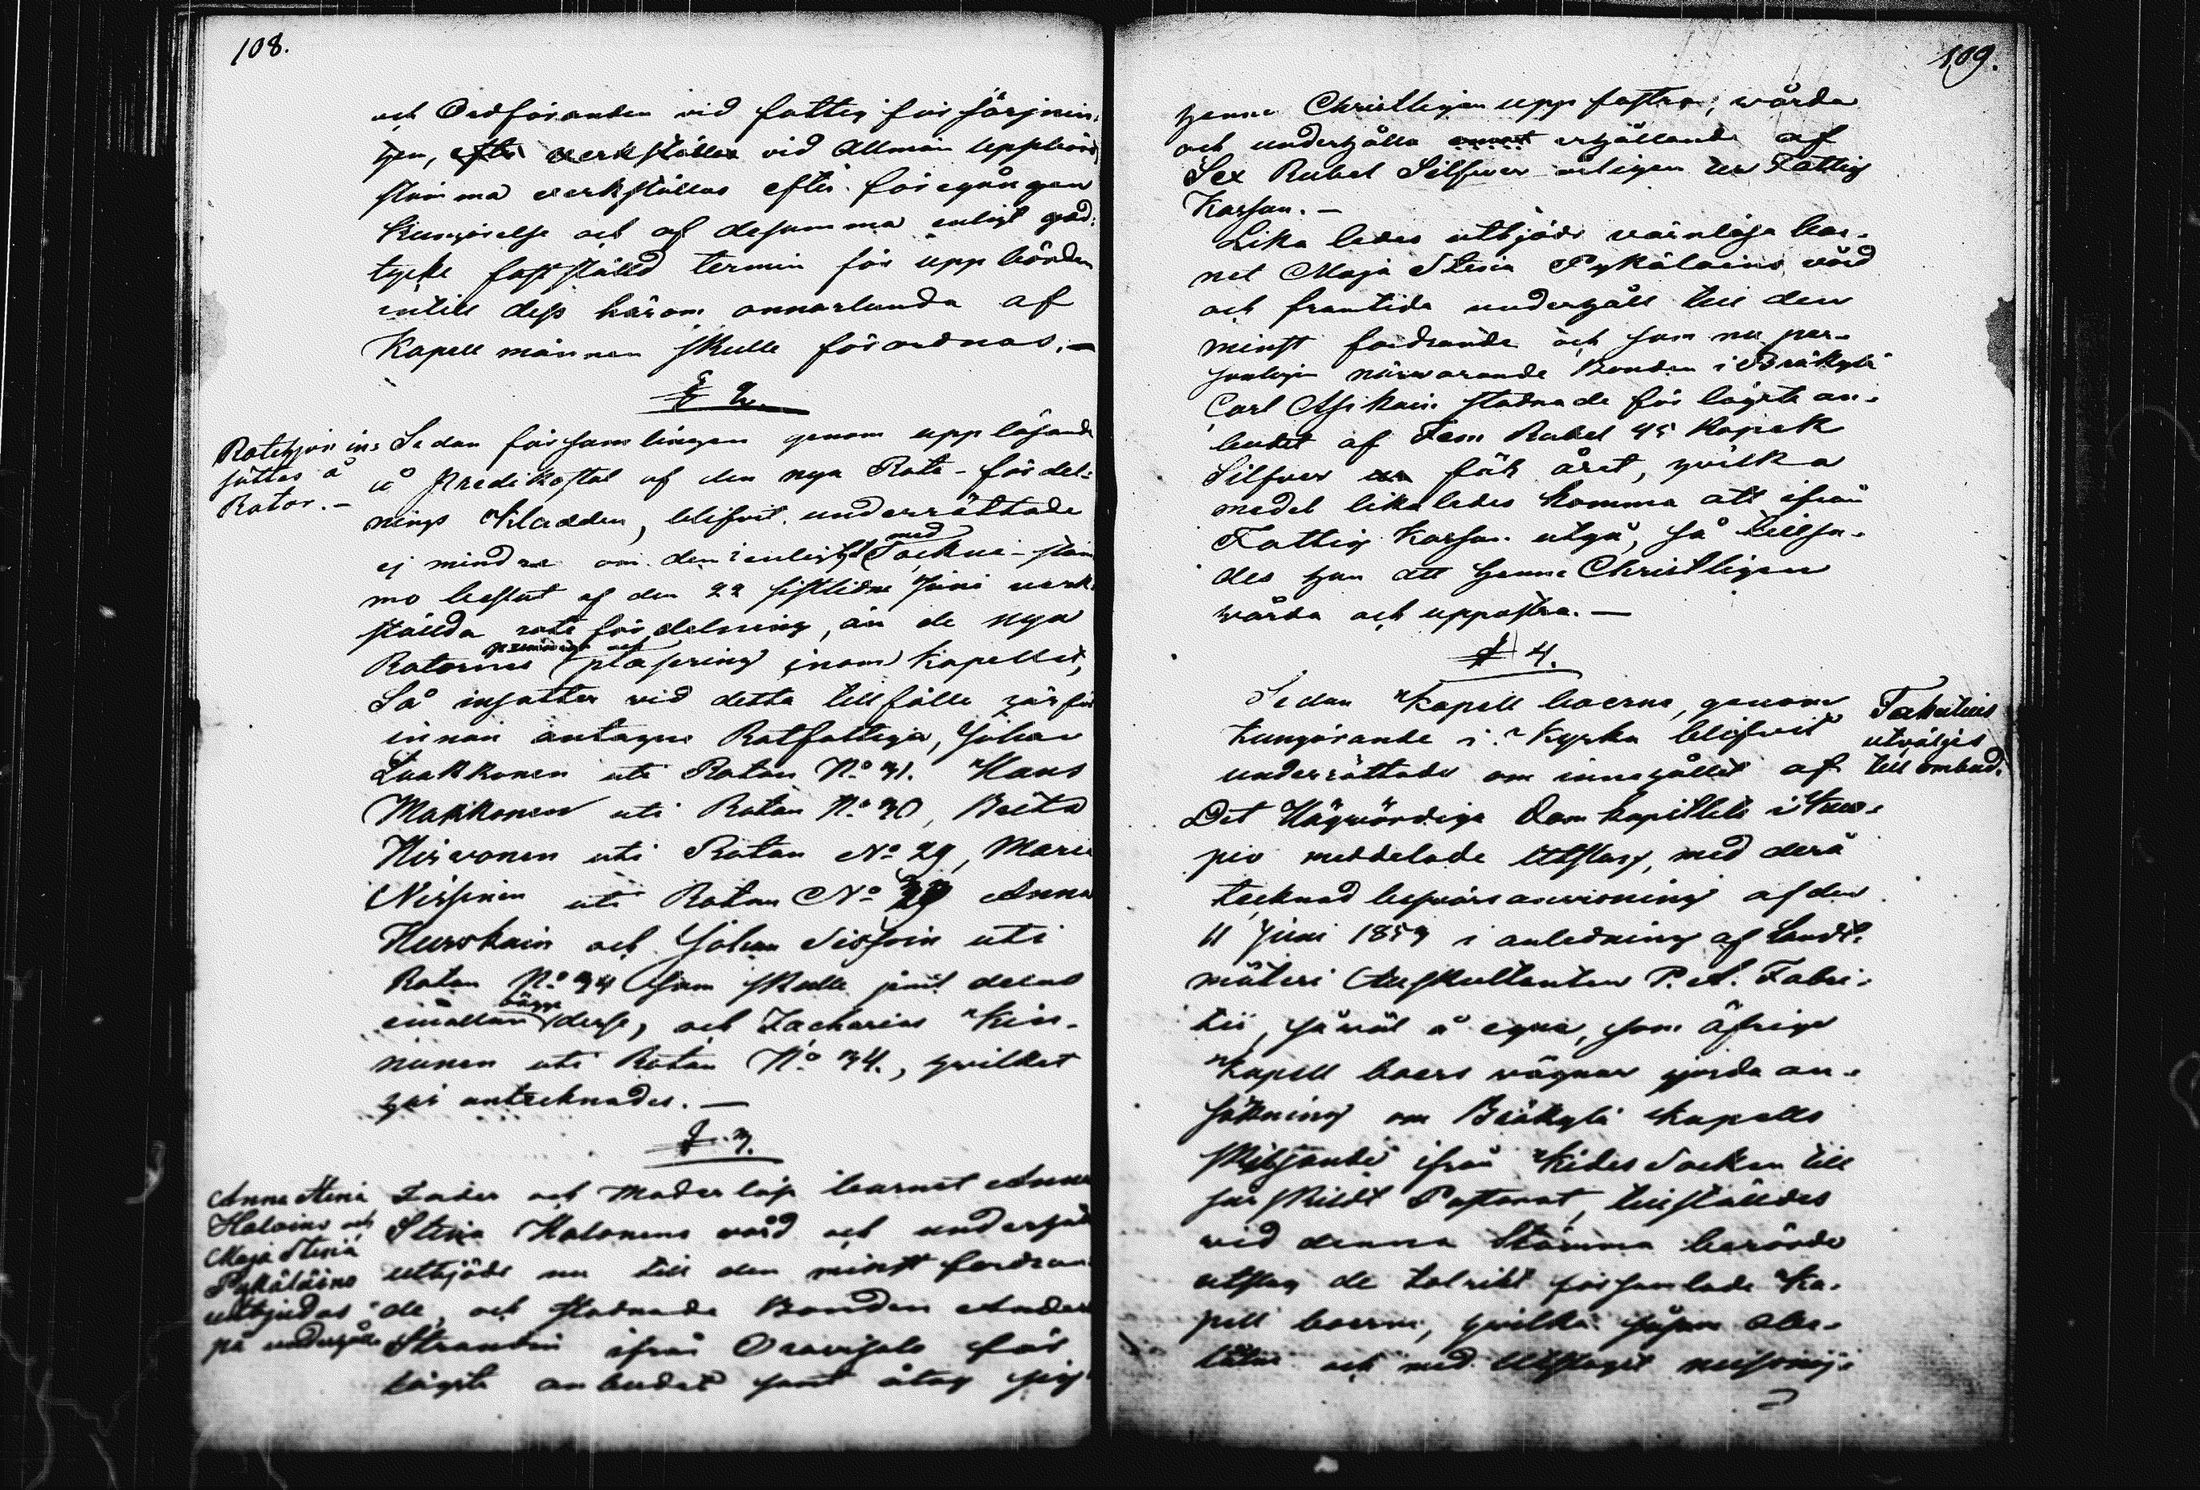 108.
och Ordföranden vid fattig försörjnin-
gen, verkställas vid Allmän Uppbörds
stämma verkställas efter föregången
Kungörelse och af desamma enligt god-
tycke fastställd termin för uppbörden
intill dess härom annorlunda af
Kapell männen skulle förordnas. —
§ 2.
Rotehjon in-
sättes å
Rotor. —
Sedan församlingen genom uppläsande
å Predikostol af den nya Rote-fördel-
nings Kladden, blifvit underrättade
ej mindre om den enligt med Sockne-stäm
mo beslut af den 22 sistledne Juni verk-
ställda rote fördelning, än de nya
Rotornes och plasering inom Kapellet,
Så insattes vid detta tillfälle här för
innan antagne Rotfattiga, Johan
Luukkonen uti Rotan No 31. Hans
Makkonen uti Rotan No 30, Beata
Hirvonen uti Rotan No 29, Maria
Nissinen uti Rotan No 39 Anna
Hurskain och Johan Sissoin uti
Rotan No 34 som skulle jemt delas
emellan bägge desse, och Zacharias Kin-
nunen uti Rotan No 34., hvilket
här antecknades. —
§. 3.
Anna Stina
Haloins och
Maja Stina
Pykäläins
utbjudas
på underhåll
Fader och Moderlösa barnet Anna
Stina Halonens vård och underhåll
utbjöds nu till den minst fordran-
de, och stadnade Bonden Anders
Strandin ifrån Oravisalo för
lägsta anbudet samt åtog sig
109.
henne Christligen uppfostra, vårda
och underhålla emot erhållande af
Sex Rubel Silfver årligen ur Fattig
Kassan. —
Lika ledes utbjöds värnlösa bar-
net Maja Stina Pykäläins vård
och framtida underhåll till den
minst fordrande och som nu per-
sonligen närvarande Bonden i Bräkylä
Carl Asikain stadnade för lägsta an-
budet af Fem Rubel 45 Kopek
Silfver för året, hvilka
medel likaledes komma att ifrån
Fattig Kassan utgå, så tillsa-
des han att henne Christligen
vårda och uppostra. —
§ 4.
Fabritius
utväljes
till ombud.
Sedan Kapell boerne, genom
kungörande i Kyrka blifvit
underrättade om innehållet af
Det Högvördiga Dom kapitlets i Kuo-
pio meddelade Utslag, med derå
tecknad besvärs anvisning af den
11 Juni 1859 i anledning af Landt-
mäteri Auskultanten P. A. Fabri-
tii, såväl å egna, som öfrige
Kapell boers vägnar gjorda an-
sökning om Bräkylä Kapells
skiljande ifrån Kides Socken till
särskildt Pastorat, tillställdes
vid denna Stämma berörde
utslag de talrikt församlade Ka-
pell boerne, hvilka såsom
och med Utslaget missnöj-